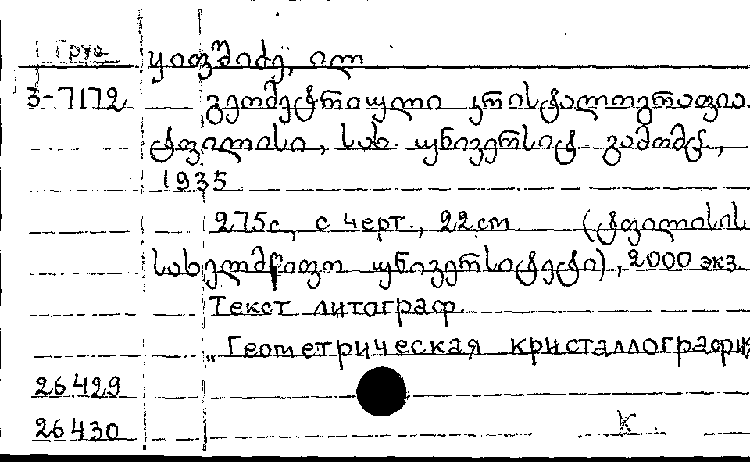 Груз. ყიფშიძე, ილ
3-7172 გეომეტრიული კრისტალოგრაფია.
ტფილისი, სახ. უნივერსიტ. გამომც.,
1935
275с., с черт., 22 cm (ტფილისის
სახელმწიფო უნივერსიტეტი), 2000 экз.
Текст литограф.
„Геометрическая кристаллография
26429
26430 К.